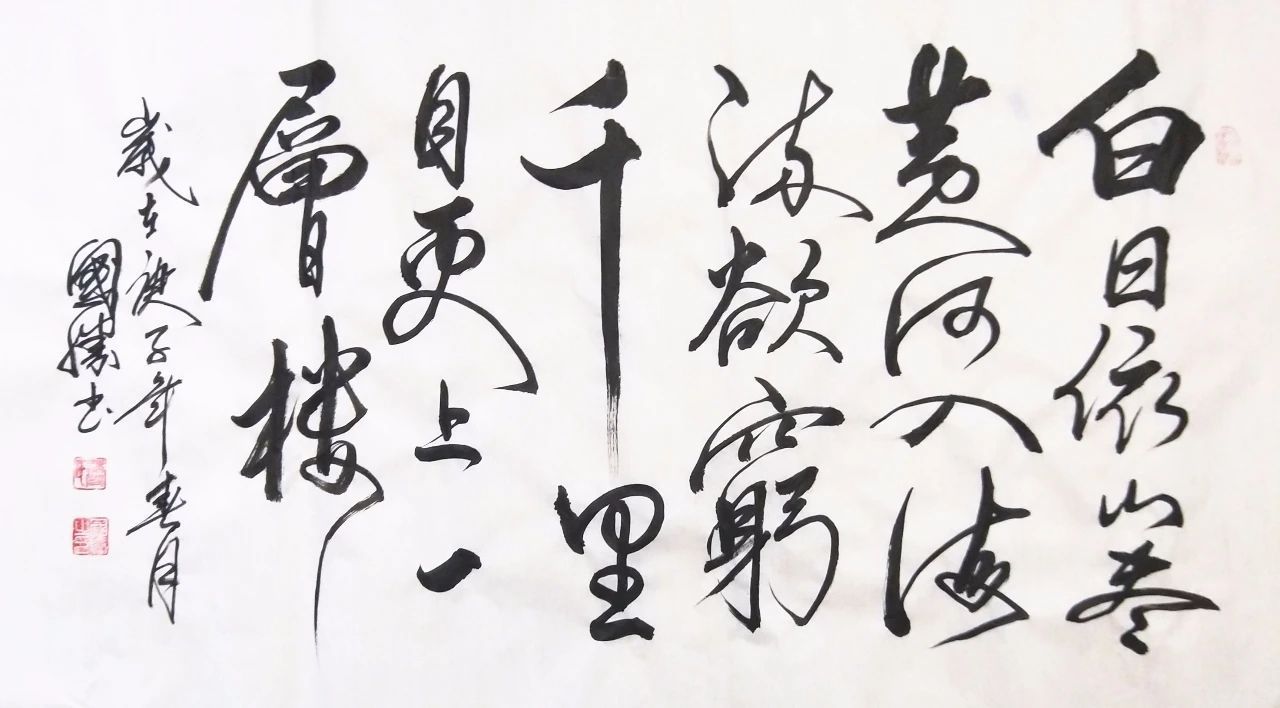 白日依山尽
黄河入海
流欲窮
千里
目更上一
層楼
歲在庚子年春月
國勝书